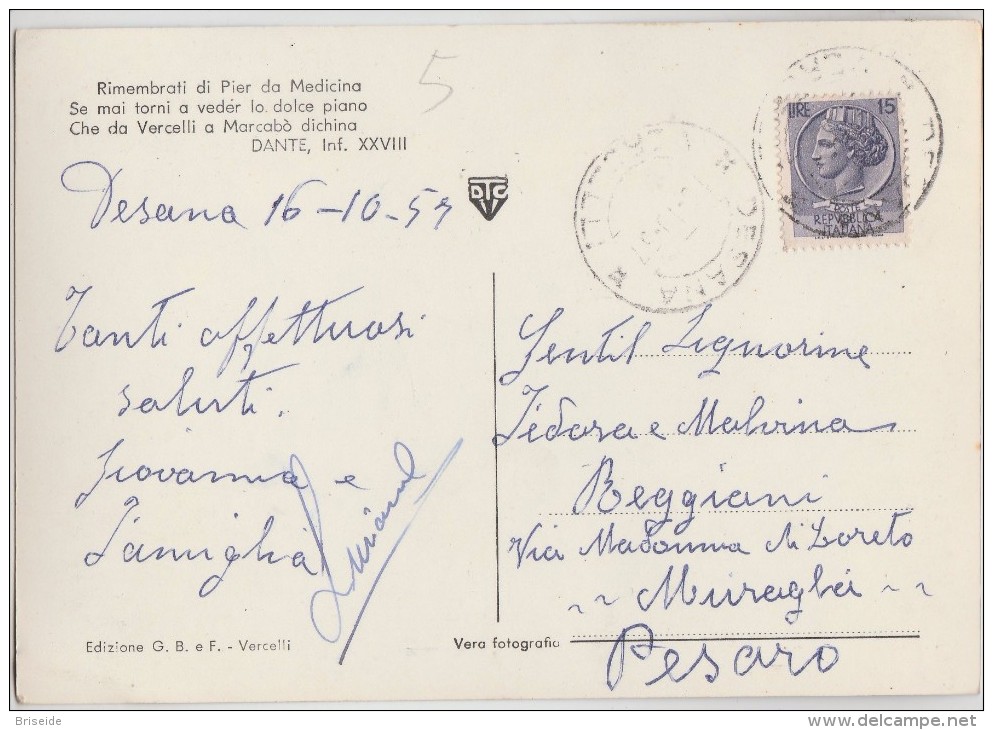 5
Rimembrati di Pier da Medicina
Se mai torni a veder lo dolce piano
Che da Vercelli a Marcabò dichina
DANTE, Inf. XXVIII
Desana 16-10-59
DTC
Tanti affettuosi
saluti.
Giovanna e
Famiglia
Edizione G. B. e F. - Vercelli
Vera fotografia
DESANA
LIRE 15
REPVBBLICA
ITALIANA
Gentil Signorine
Fedora e Malvina
Reggiani
Via Madonna di Loreto
~ ~ Muraglia ~ ~
Pesaro
Briseide
www.delcampe.net